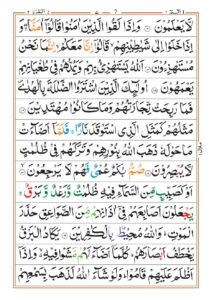 لَّا يَعْلَمُوْنَ ۝ وَاِذَا لَقُوا الَّذِيْنَ اٰمَنُوْا قَالُوْٓا اٰمَنَّا ۖ وَ
اِذَا خَلَوْا اِلٰى شَيٰطِيْنِهِمْ قَالُوْٓا اِنَّا مَعَكُمْ اِنَّمَا نَحْنُ
مُسْتَهْزِءُوْنَ ۝ اَللّٰهُ يَسْتَهْزِئُ بِهِمْ وَيَمُدُّهُمْ فِيْ طُغْيَانِهِمْ
يَعْمَهُوْنَ ۝ اُولٰٓئِكَ الَّذِيْنَ اشْتَرَوُا الضَّلٰلَةَ بِالْهُدٰى
فَمَا رَبِحَتْ تِّجَارَتُهُمْ وَمَا كَانُوْا مُهْتَدِيْنَ ۝
مَثَلُهُمْ كَمَثَلِ الَّذِي اسْتَوْقَدَ نَارًا ۚ فَلَمَّآ اَضَآءَتْ
مَا حَوْلَهٗ ذَهَبَ اللّٰهُ بِنُوْرِهِمْ وَتَرَكَهُمْ فِيْ ظُلُمٰتٍ
لَّا يُبْصِرُوْنَ ۝ صُمٌّۢ بُكْمٌ عُمْيٌ فَهُمْ لَا يَرْجِعُوْنَ ۝
اَوْ كَصَيِّبٍ مِّنَ السَّمَآءِ فِيْهِ ظُلُمٰتٌ وَّرَعْدٌ وَّبَرْقٌ ۚ
يَجْعَلُوْنَ اَصَابِعَهُمْ فِيْٓ اٰذَانِهِمْ مِّنَ الصَّوَاعِقِ حَذَرَ
الْمَوْتِ ؕ وَاللّٰهُ مُحِيْطٌۢ بِالْكٰفِرِيْنَ ۝ يَكَادُ الْبَرْقُ
يَخْطَفُ اَبْصَارَهُمْ ؕ كُلَّمَآ اَضَآءَ لَهُمْ مَّشَوْا فِيْهِ ۙ وَاِذَآ
اَظْلَمَ عَلَيْهِمْ قَامُوْا ؕ وَلَوْ شَآءَ اللّٰهُ لَذَهَبَ بِسَمْعِهِمْ